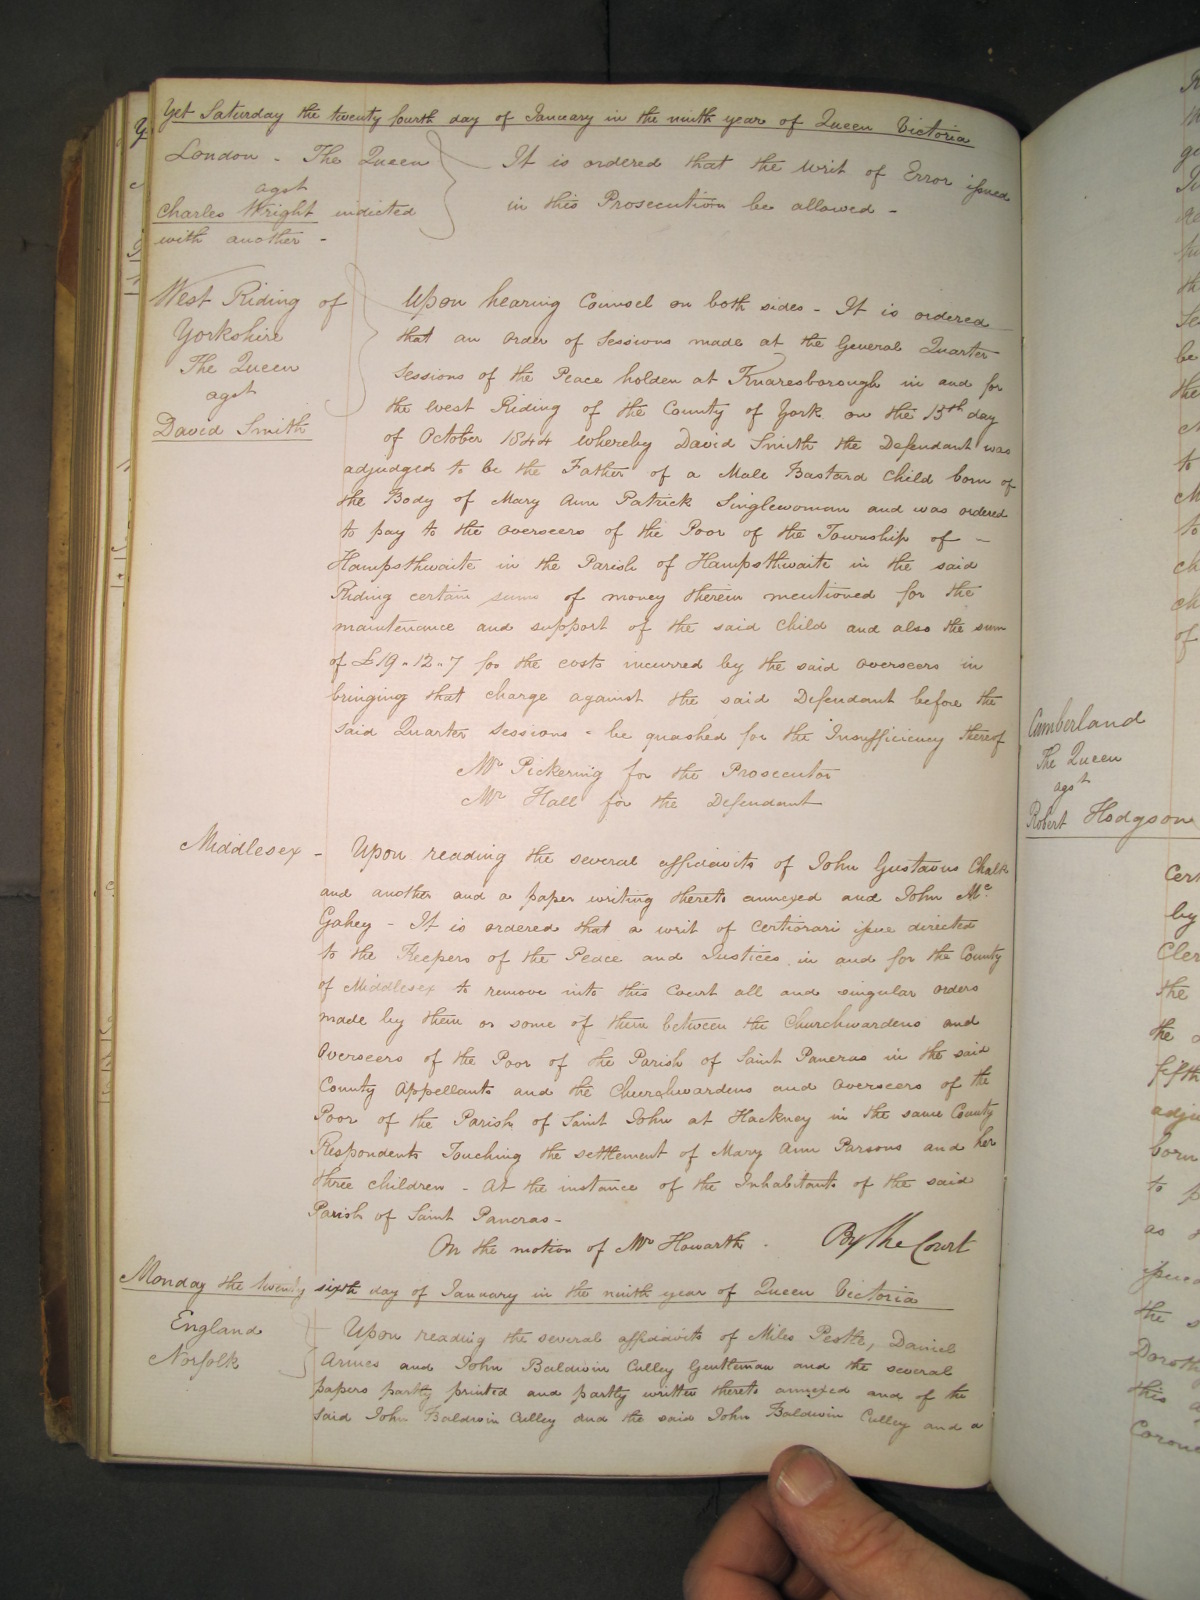 Yet Saturday the twenty fourth day of January in the ninth year of Queen Victoria
London - The Queen
agst
Charles Wright indicted
with another -
It is ordered that the Writ of Error issued
in this Prosecution be allowed -
West Riding of
Yorkshire
The Queen
agst
David Smith
Upon hearing Counsel on both sides - It is ordered
that an order of Sessions made at the General Quarter
Sessions of the Peace holden at Knaresborough in and for
the West Riding of the County of York on the 15th day
of October 1844 whereby David Smith the Defendant was
adjudged to be the Father of a Male Bastard child born of
the Body of Mary Ann Patrick Singlewoman and was ordered
to pay to the overseers of the Poor of the Township of -
Hampsthwaite in the Parish of Hampsthwaite in the said
Riding certain sums of money therein mentioned for the
maintenance and support of the said child and also the sum
of £19-12-7 for the costs incurred by the said overseers in
bringing that charge against the said Defendant before the
said Quarter Sessions - be quashed for the Insufficiency thereof
Mr Pickering for the Prosecutor
Mr Hall for the Defendant
Middlesex - Upon reading the several affidavits of John Gustavus Chalk
and another and a paper writing thereto annexed and John Mc
Gahey - It is ordered that a writ of certiorari issue directed
to the Keepers of the Peace and Justices in and for the County
of Middlesex to remove into this Court all and singular orders
made by them or some of them between the Churchwardens and
Overseers of the Poor of the Parish of Saint Pancras in the said
County Appellants and the Churchwardens and Overseers of the
Poor of the Parish of Saint John at Hackney in the same County
Respondents Touching the settlement of Mary Ann Parsons and her
three children - At the instance of the Inhabitants of the said
Parish of Saint Pancras -
On the motion of Mr Howarth - By the Court
Monday the twenty sixth day of January in the ninth year of Queen Victoria
England
Norfolk
Upon reading the several affidavits of Miles Pestle, Daniel
Armes and John Baldwin Culley Gentleman and the several
papers partly printed and partly written thereto annexed and of the
said John Baldwin Culley and the said John Baldwin Culley and a
Cumberland
The Queen
agst
Robert Hodgson
by
the
the
fifth
born
to
as
the
this